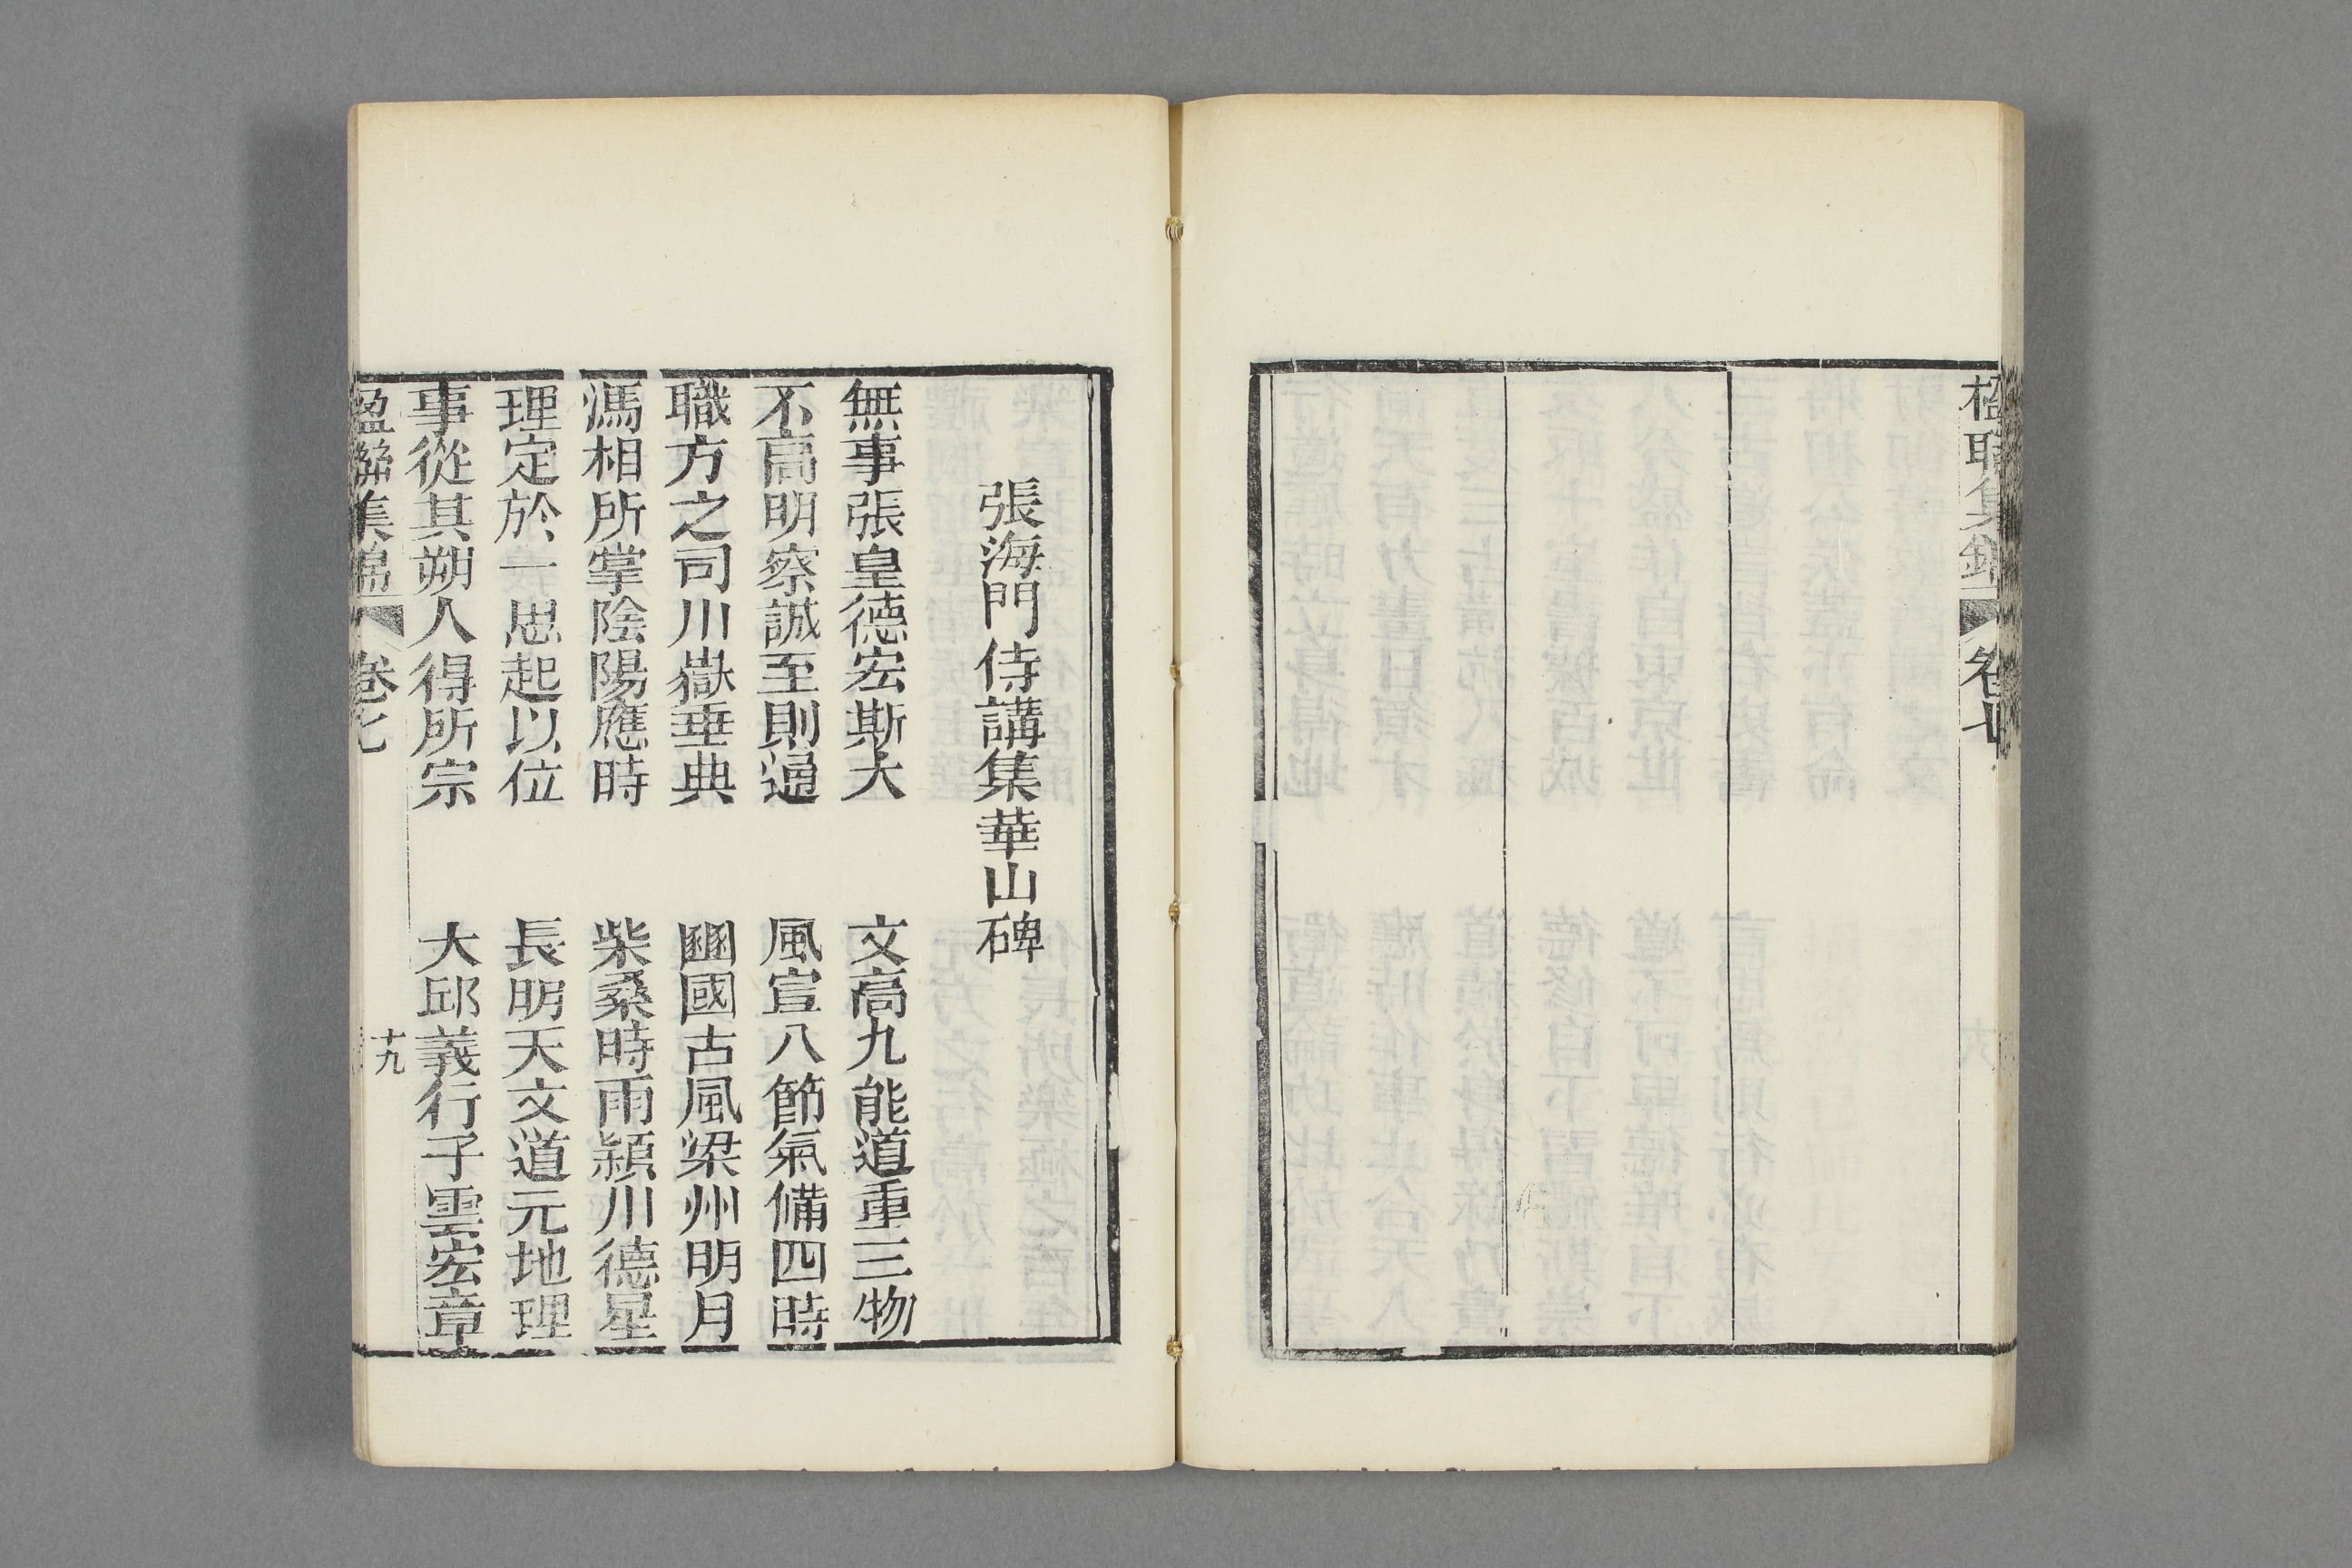 楹聯集錦 卷七
張海門侍講集華山碑
無事張皇德宏斯大 文高九能道重三物
不高明察誠至則通 風宣八節氣備四時
職方之司川嶽垂典 豳國古風梁州明月
馮相所掌陰陽應時 柴桑時雨潁川德星
理定於一思起以位 長明天文道元地理
事從其朔人得所宗 大邱義行子雲宏章
楹聯集錦 卷七 十九